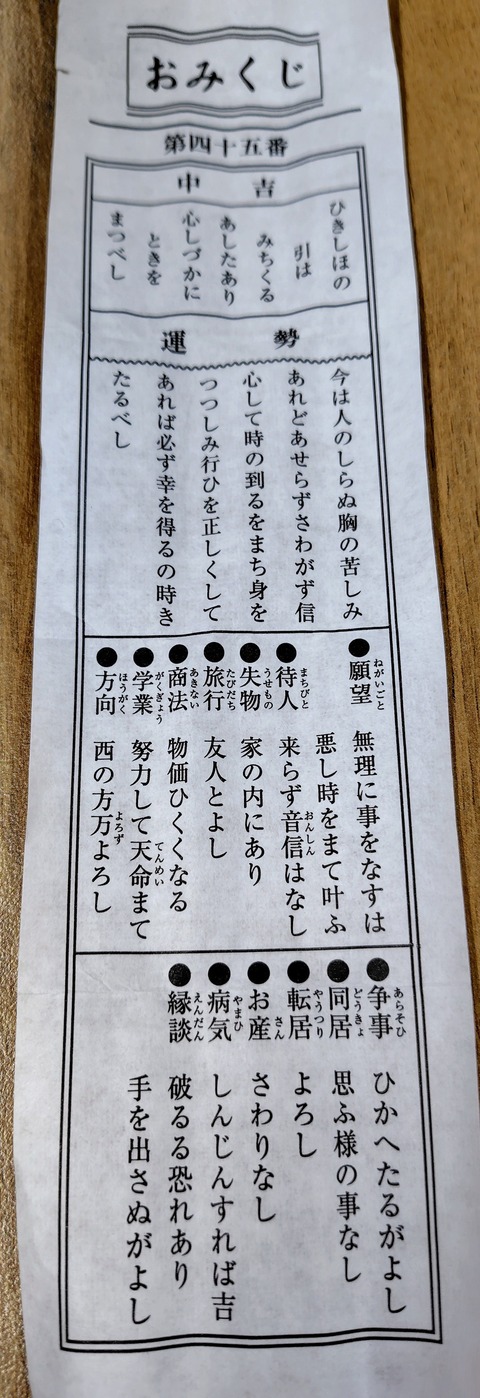 おみくじ
第四十五番
中吉
ひきしほの
引は
みちくる
あしたあり
心しづかに
ときを
まつべし
運勢
今は人のしらぬ胸の苦しみ
あれどあせらずさわがず信
心して時の到るをまち身を
つつしみ行ひを正しくして
あれば必ず幸を得るの時き
たるべし
●願望 ねがいごと 無理に事をなすは
悪し時をまて叶ふ
●待人 まちびと 来らず音信はなし おんしん
●失物 うせもの 家の内にあり
●旅行 たびだち 友人とよし
●商法 あきない 物価ひくくなる
●学業 がくぎょう 努力して天命まて てんめい
●方向 ほうがく 西の方万よろし よろず
●争事 あらそひ ひかへたるがよし
●同居 どうきょ 思ふ様の事なし
●転居 やうつり よろし
●お産 さん さわりなし
●病気 やまひ しんじんすれば吉
●縁談 えんだん 破るる恐れあり
手を出さぬがよし